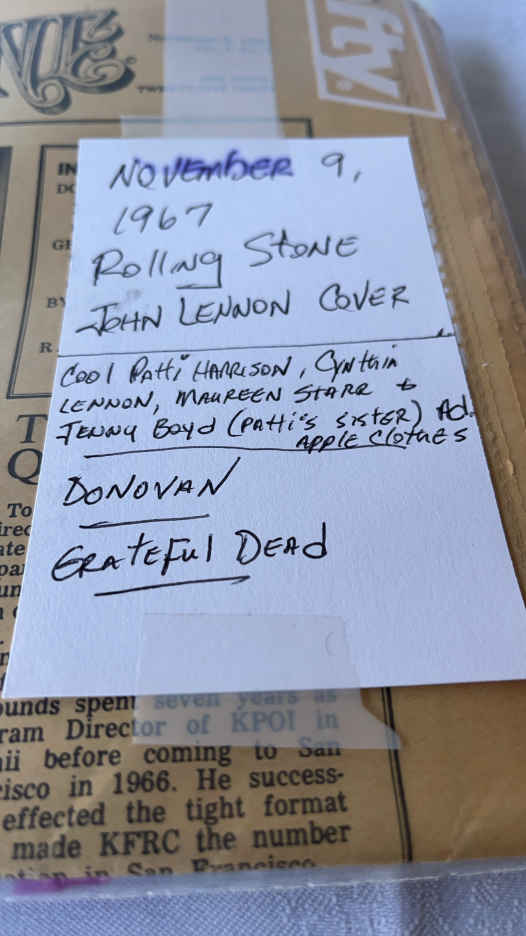 fty.
NOVEMBER 9,
1967
ROLLING STONE
JOHN LENNON COVER
COOL PATTI HARRISON, CYNTHIA
LENNON, MAUREEN STARR +
JENNY BOYD (PATTI'S SISTER) Ad.
APPLE CLOTHES
DONOVAN
GRATEFUL DEAD
IN
BY
R.
T
Q
To
spent seven years as
Director of KPOI in
before coming to San
in 1966. He success-
effected the tight format
made KFRC the number
in San Francisco